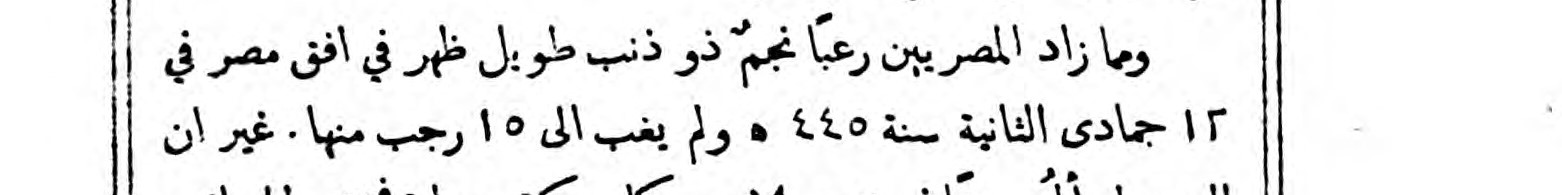 ومما زاد المصريين رعبًا نجمٌ ذو ذنب طويل ظهر في افق مصر في
١٢ جمادى الثانية سنة ٤٤٥ ه ولم يغب الى ١٥ رجب منها. غير ان